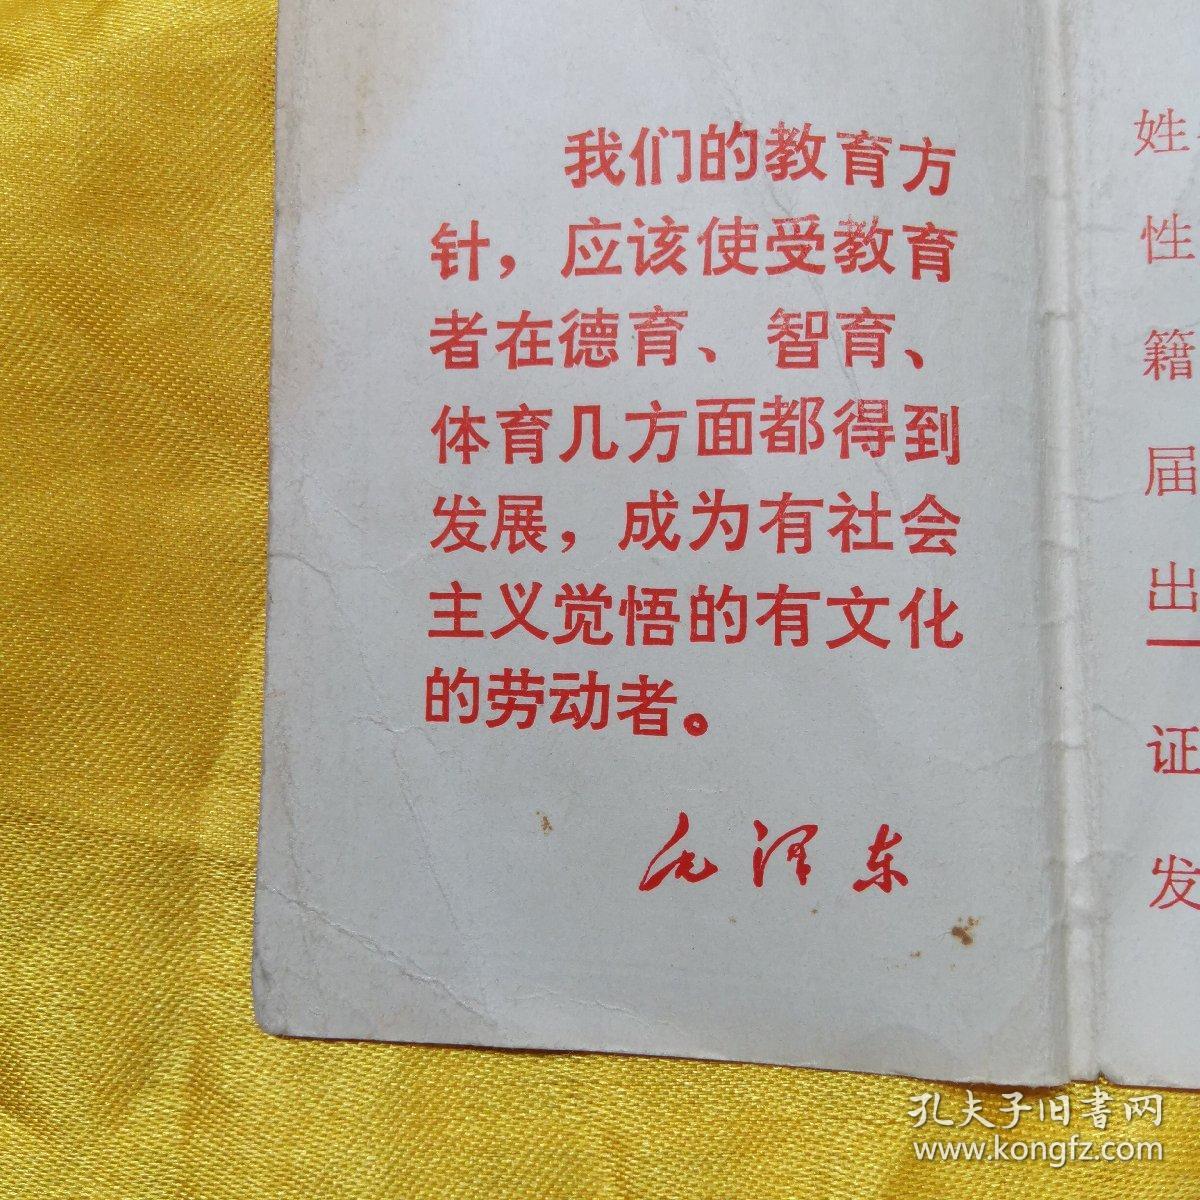 我们的教育方
针，应该使受教育
者在德育、智育、
体育几方面都得到
发展，成为有社会
主义觉悟的有文化
的劳动者。
毛泽东
姓
性
籍
届
出
证
发
孔夫子旧書网
www.kongfz.com